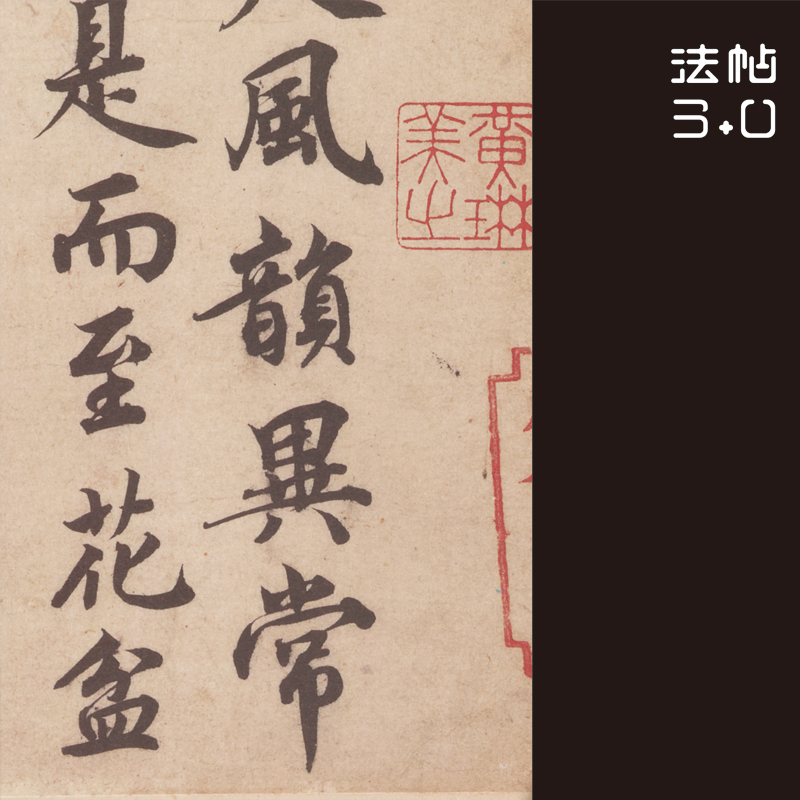 法帖
3.0
黃琳
美之
風韻異常
是而至花盆